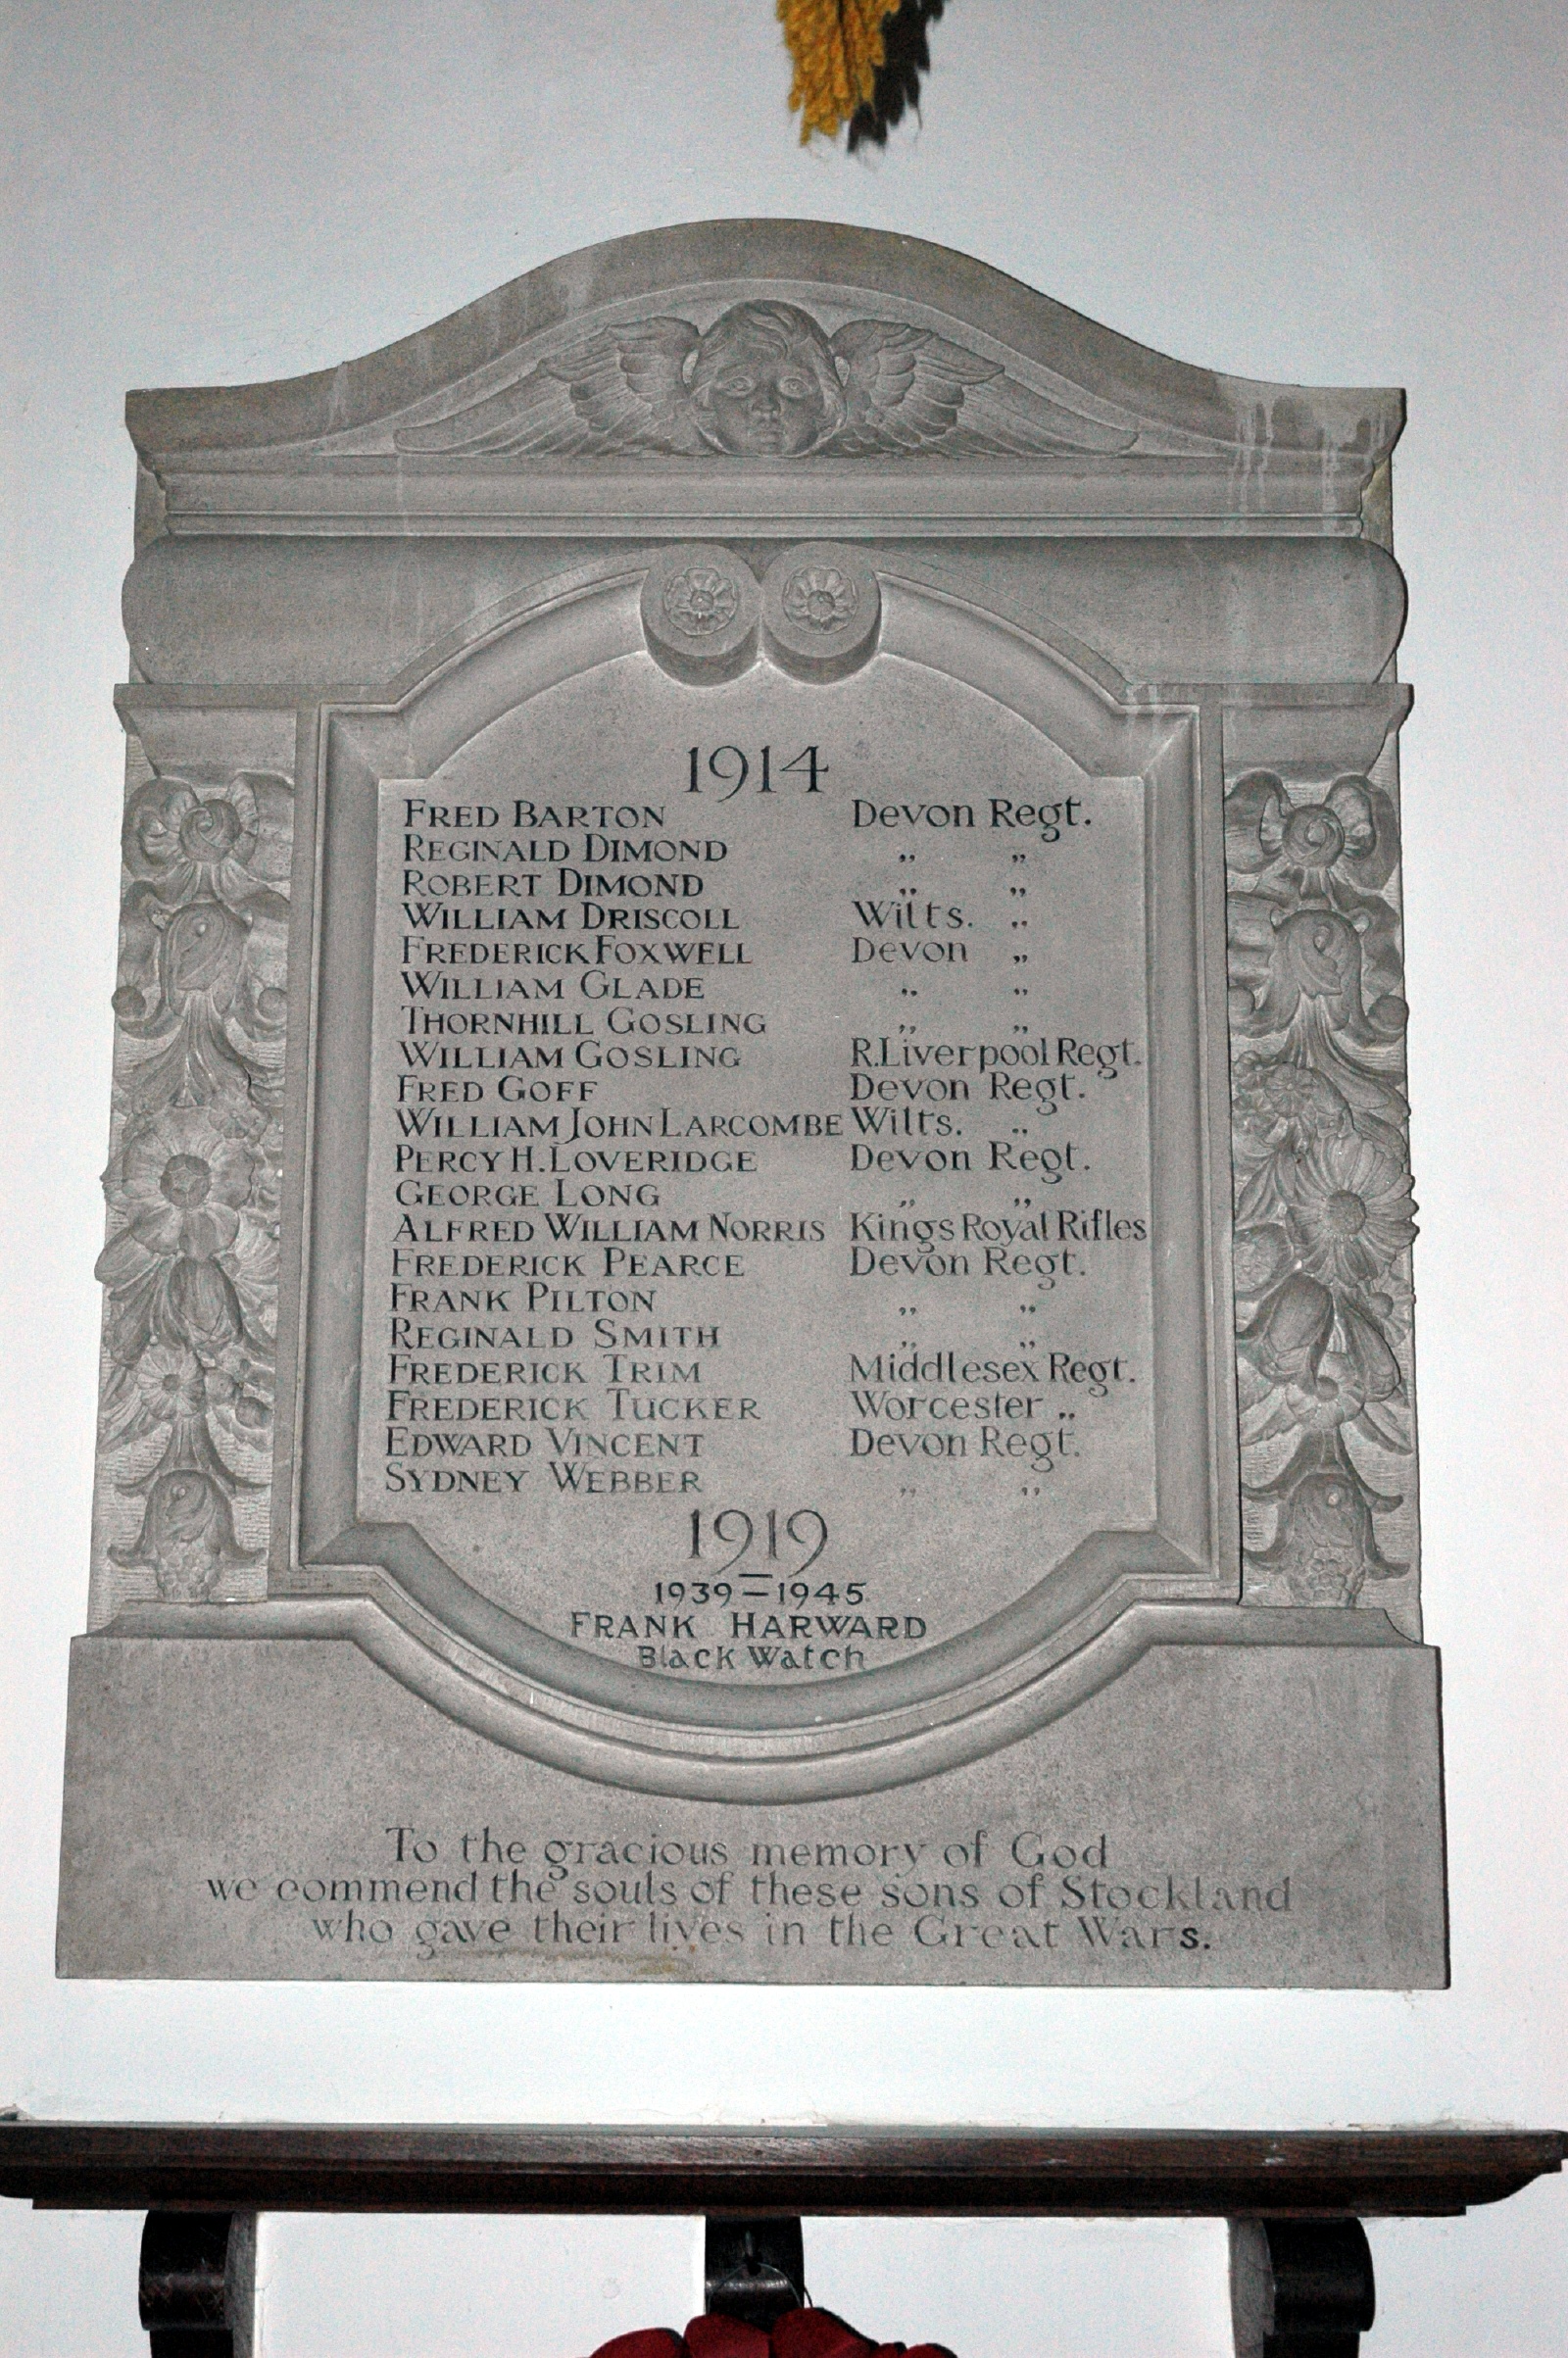 1914
FRED BARTON Devon Regt.
REGINALD DIMOND „ „
ROBERT DIMOND „ „
WILLIAM DRISCOLL Wilts. „
FREDERICK FOXWELL Devon „
WILLIAM GLADE „ „
THORNHILL GOSLING „ „
WILLIAM GOSLING R.Liverpool Regt.
FRED GOFF Devon Regt.
WILLIAM JOHN LARCOMBE Wilts. „
PERCY H. LOVERIDGE Devon Regt.
GEORGE LONG „ „
ALFRED WILLIAM NORRIS Kings Royal Rifles
FREDERICK PEARCE Devon Regt.
FRANK PILTON „ „
REGINALD SMITH „ „
FREDERICK TRIM Middlesex Regt.
FREDERICK TUCKER Worcester „
EDWARD VINCENT Devon Regt.
SYDNEY WEBBER „ „
1919
1939–1945
FRANK HARWARD
Black Watch
To the gracious memory of God
we commend the souls of these sons of Stockland
who gave their lives in the Great Wars.